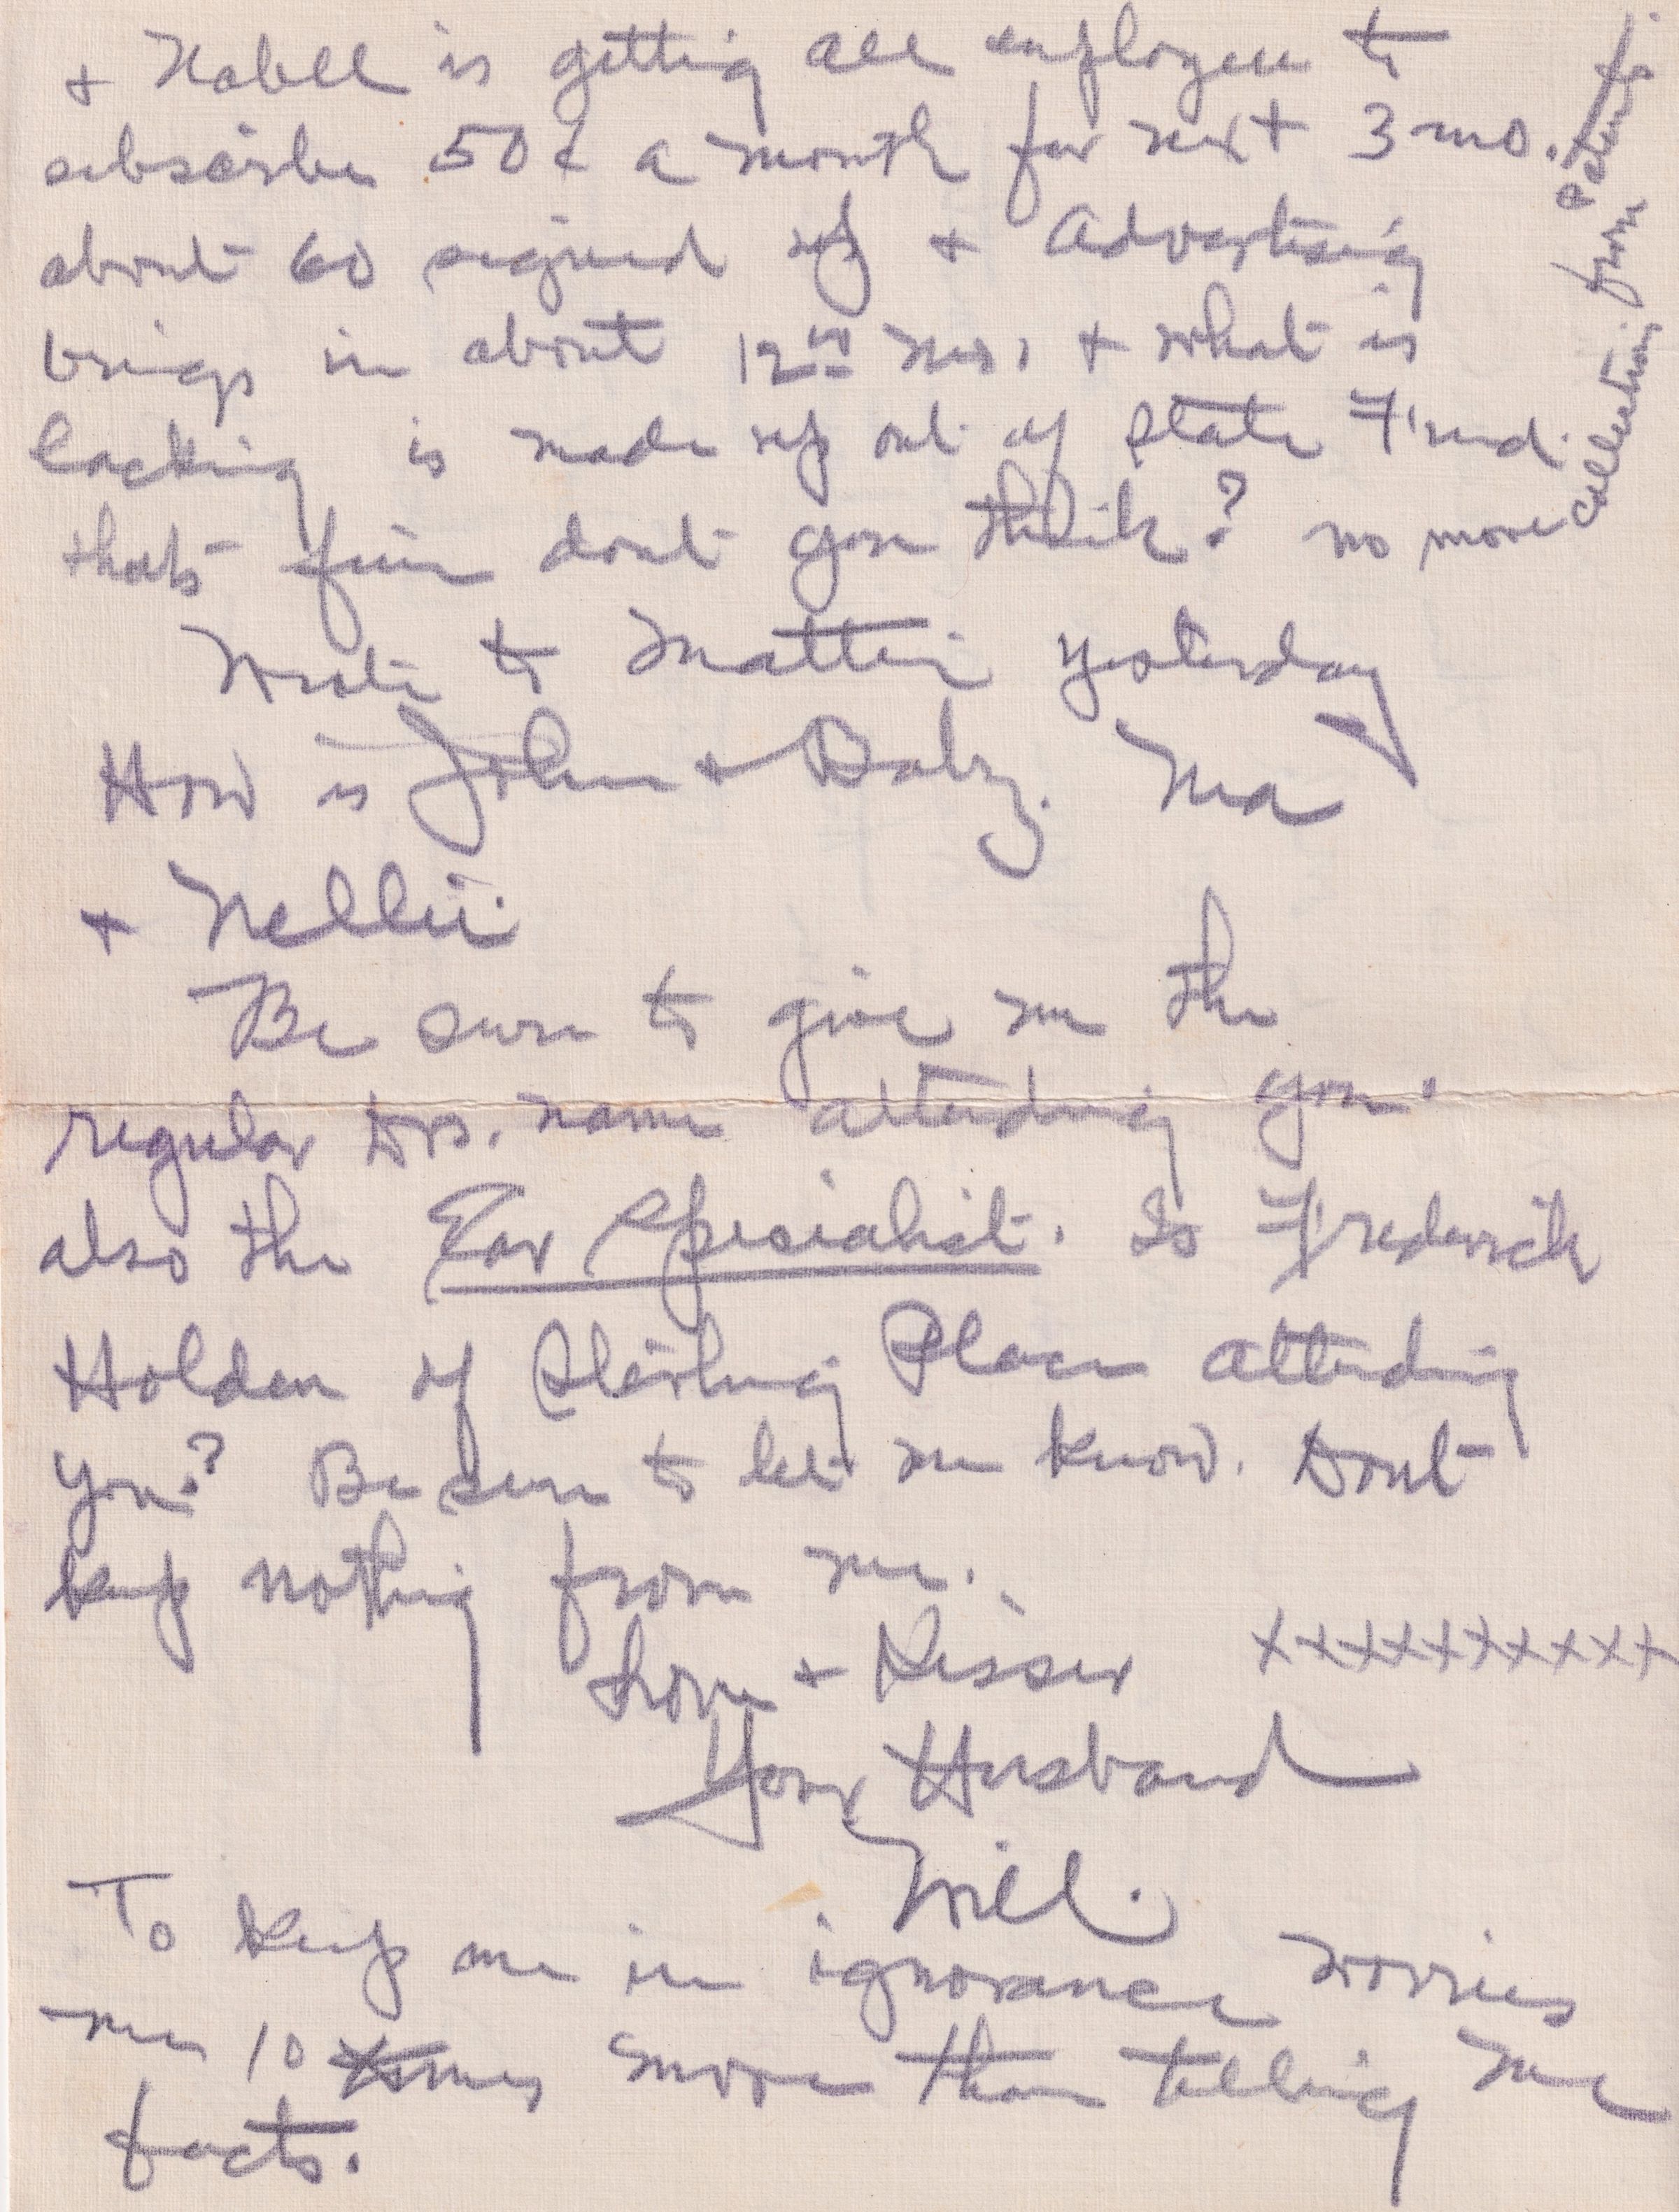 + Nabell is getting all employees to
subscribe 50¢ a month for next 3 mo.
about 60 signed up + Advertising
brings in about 12 00 mo. + what is
lacking is made up out of State Fund.
thats fine dont you think? no more
collection from patients
Wrote to Mattie yesterday
How is John + Baby. Ma
+ Nellie.
Be sure to give me the
regular Drs. name attending you.
also the Ear Specialist. Is Frederick
Holden of Sterling Place attending
you? Be sure to let me know. Dont
keep nothing from me.
Love + Kisses xxxxxxxxxx
Your Husband
Will.
To keep me in ignorance worries
me 10 times more than telling me
facts.